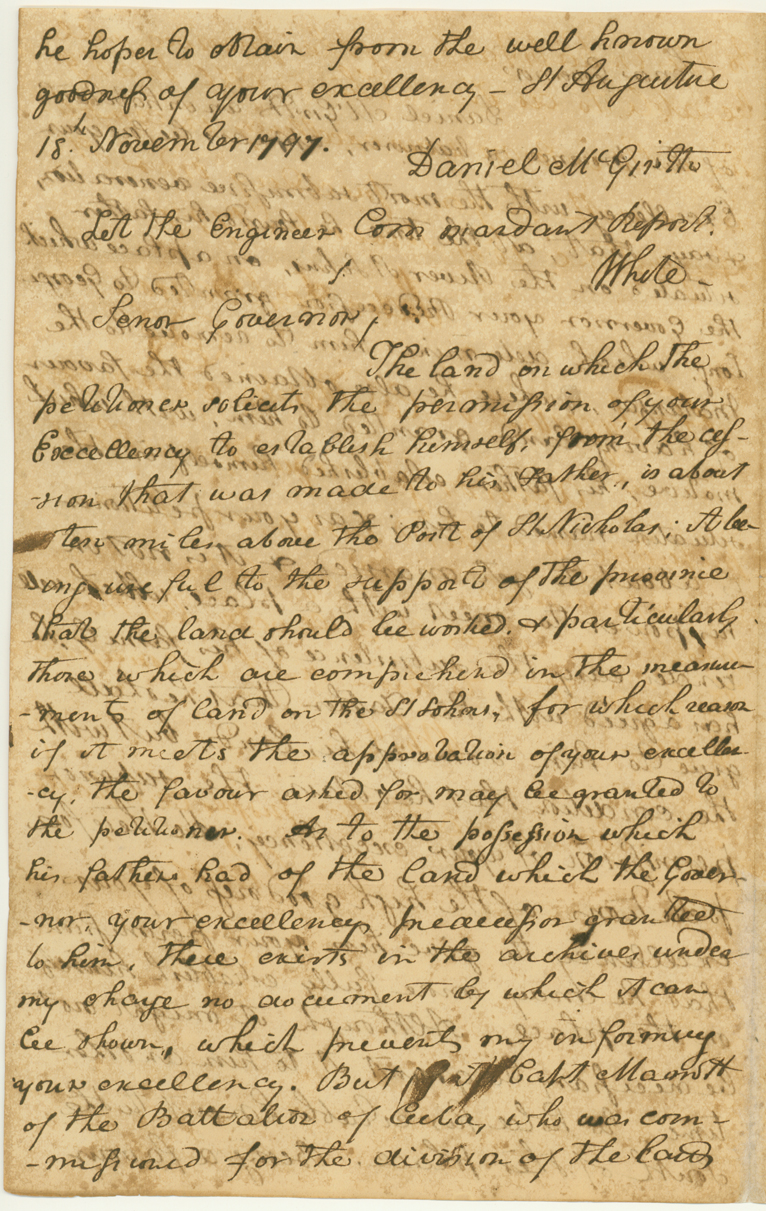 he hopes to obtain from the well known
goodness of your excellency – St Augustine
18th November 1797.
Daniel McGirtt
Let the Engineer Commandant Report.
White –
Senor Governor,
The land on which the
petitioner solicits the permission of your
Excellency to establish himself, from the ces-
-sion that was made to his Father, is about
ten miles above the Port of St Nicholas; It be-
ing useful to the support of the province
that the land should be worked. & particularly
those which are comprehend in the measure-
-ments of land on the St Johns, for which reason
if it meets the approbation of your excellen-
-cy, the favour asked for may be granted to
the petitioner. As to the possession which
his father had of the land which the Gover-
-nor, your excellencys predecessor granted
to him, there exists in the archives under
my charge no document by which it can
be shown, which prevents my informing
your excellency. But Capt Marrott
of the Battalion of Cuba, who was com-
-missioned for the division of the lands